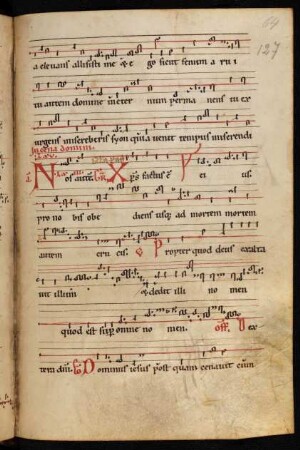 64
127
a elevans allisisti me & e go sicut fenum a ru i
tu autem domine in eter num perma nens tu ex
urgens misereberis syon quia venit tempus miserendi
In cena domini
Nos aute. Xps factus e & us
pro no bis obe diens usq ad mortem mortem
autem cru cis. Propter quod deus exalta
vit illum & dedit illi no men
quod est sup omne no men. Off. Dex
tera dni. Co Dominus iesus post quam cenavit cum